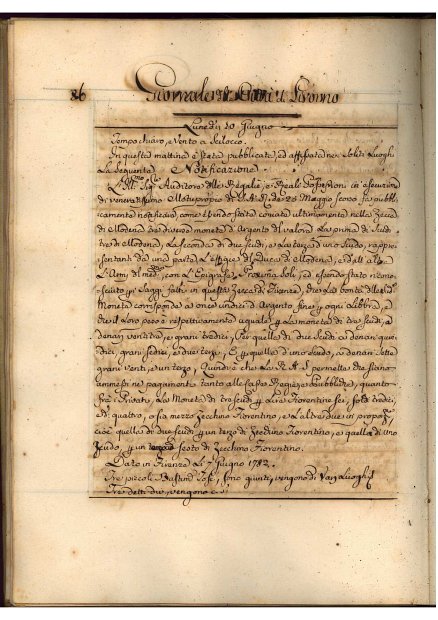 86
Lunedì 10 Giugno
Tempo chiaro, e Vento a Scilocco.
In questa mattina è stata pubblicata, ed affissata nei Soliti Luoghi
La Seguente Notificazione
L'Ill.mo Sig.r Auditore delle Regalie, e Reali Possessioni in esecuzione
di veneratissimo Motuproprio di S.A.R. de 29 Maggio scorso fà pubbli-
camente notificare, come essendo stata coniata ultimamente nella Zecca
di Modena tre diverse monete d'Argento del valore La prima di Scudi
tre di Modena, La seconda di due Scudi, e La terza d'uno Scudo, rappre-
sentanti da una parte L'effigie del Duca di Modena, e dall'altra
L'Armi del med.mo, con L'Epigrafe Proxima Soli, ed essendo stato ricono-
sciuto p. Saggi fatti in questa Zecca di Firenze, che La bontà delle d.e
Monete corrisponde a once undici d'Argento fine p. ogni Libbra, e
che il Loro peso è respettivamente uguale p. La moneta di tre Scudi, a
denari ventitrè, e grani tredici, Per quella di due Scudi a denari quin-
dici, grani sedici, e due terzi, E p. quella d'uno Scudo, a denari sette
grani venti, e un terzo, Quindi è che La R. A. S. permette che siano
ammessi ne' pagamenti tanto alle Casse Regie, e Pubbliche, quanto
fra i Privati, La Moneta di tre Scudi p. Lire Fiorentine sei, soldi tredici,
e d. quattro, o sia mezzo Zecchino Fiorentino, e L'altre due in proporz.e
cioè quella di due Scudi p. un terzo di Zecchino Fiorentino, e quella di uno
Scudo, p. un sesto di Zecchino Fiorentino.
Dato in Firenze Li 7 Giugno 1782.
Tre piccoli Bastim.ti sono giunti, vengono di Varj Luoghi
Tre detti due, vengono